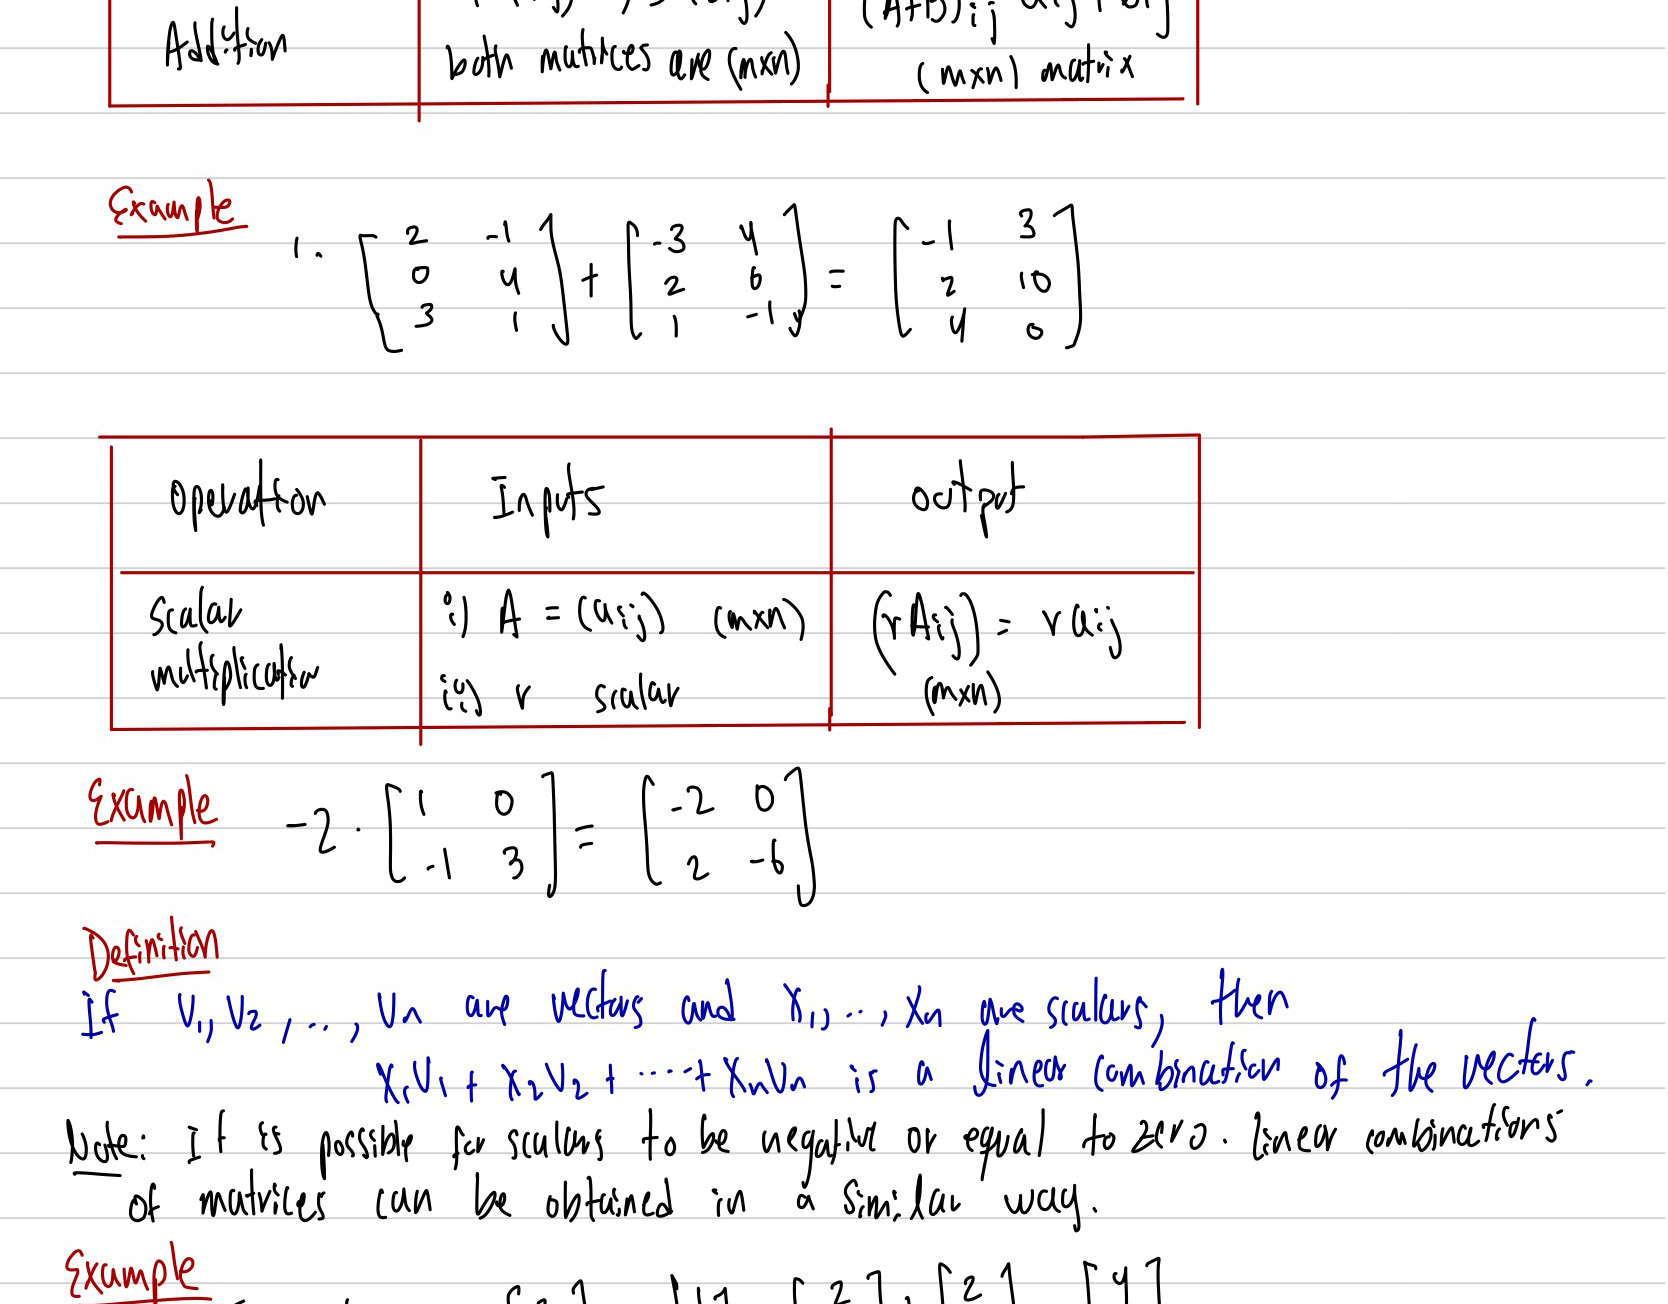 Addition both matrices are (mxn) (mxn) matrix
Example
1. [ 2 -1 ] + [ -3 4 ] = [ -1 3 ]
0 4 2 6 2 10
3 1 1 -1 4 0
Operation Inputs output
Scalar i) A = (aij) (mxn) (rAij) = raij
multiplication ii) r scalar (mxn)
Example -2 · [ 1 0 ] = [ -2 0 ]
-1 3 2 -6
Definition
If V1, V2, ..., Vn are vectors and X1, ..., Xn are scalars, then
X1V1 + X2V2 + ····+ XnVn is a linear combination of the vectors.
Note: It is possible for scalars to be negative or equal to zero. linear combinations
of matrices can be obtained in a similar way.
Example